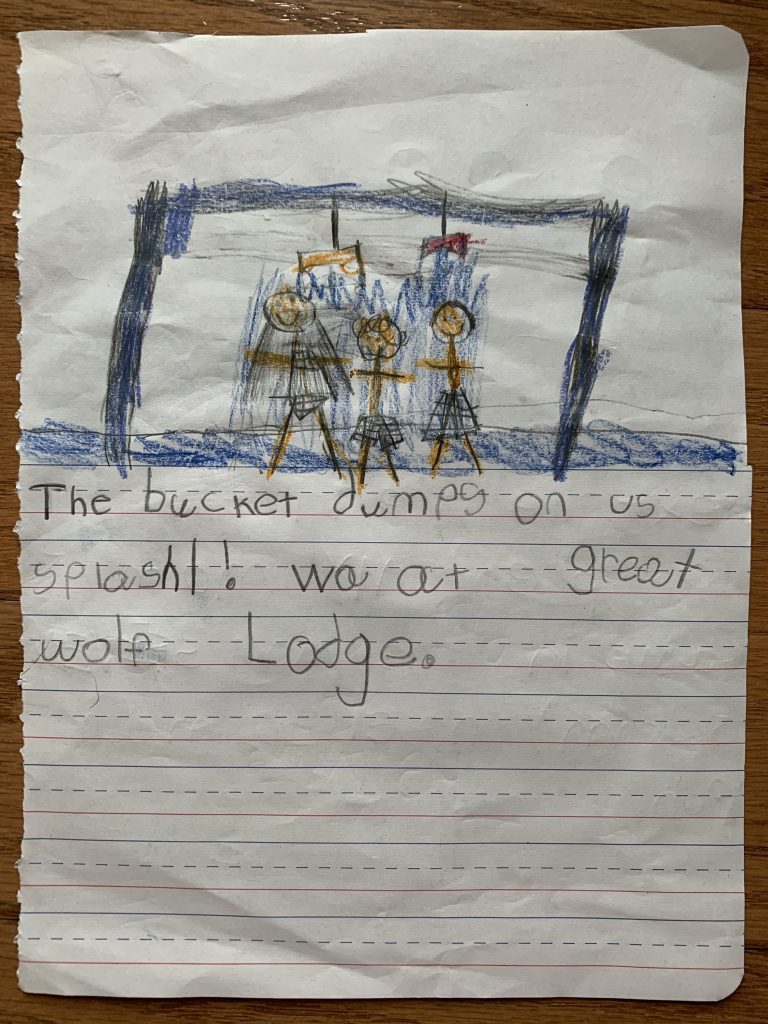 The bucket dumps on us
splash! wa at great
wolf Lodge.